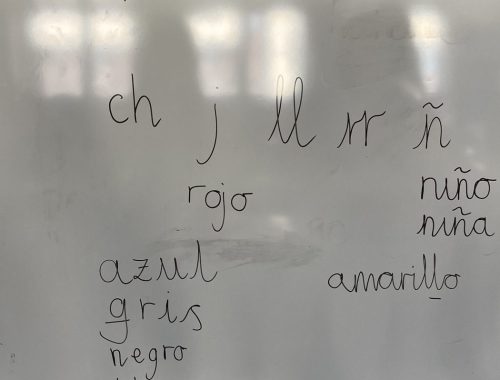 ch j ll rr ñ
rojo niño
niña
azul amarillo
gris
negro